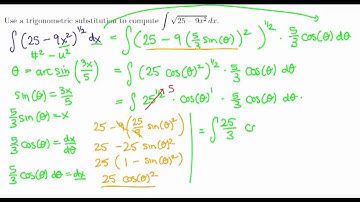 Use a trigonometric substitution to compute ∫ √25 − 9x² dx.
∫ (25 − 9x²)^(1/2) dx = ∫ (25 − 9 (5/3 sin(θ))²)^(1/2) · 5/3 cos(θ) dθ
#² − u²
θ = arcsin(3x/5)
= ∫ (25 cos(θ)²)^(1/2) · 5/3 cos(θ) dθ
sin(θ) = 3x/5
= ∫ 25^(1/2) 5 · cos(θ)¹ · 5/3 cos(θ) dθ.
5/3 sin(θ) = x
25 − 9 (25/9 sin(θ)²)
= ∫ 25/3 c
5/3 cos(θ) = dx/dθ
25 − 25 sin(θ)²
25 (1 − sin(θ)²)
5/3 cos(θ) dθ = dx
25 cos(θ)²